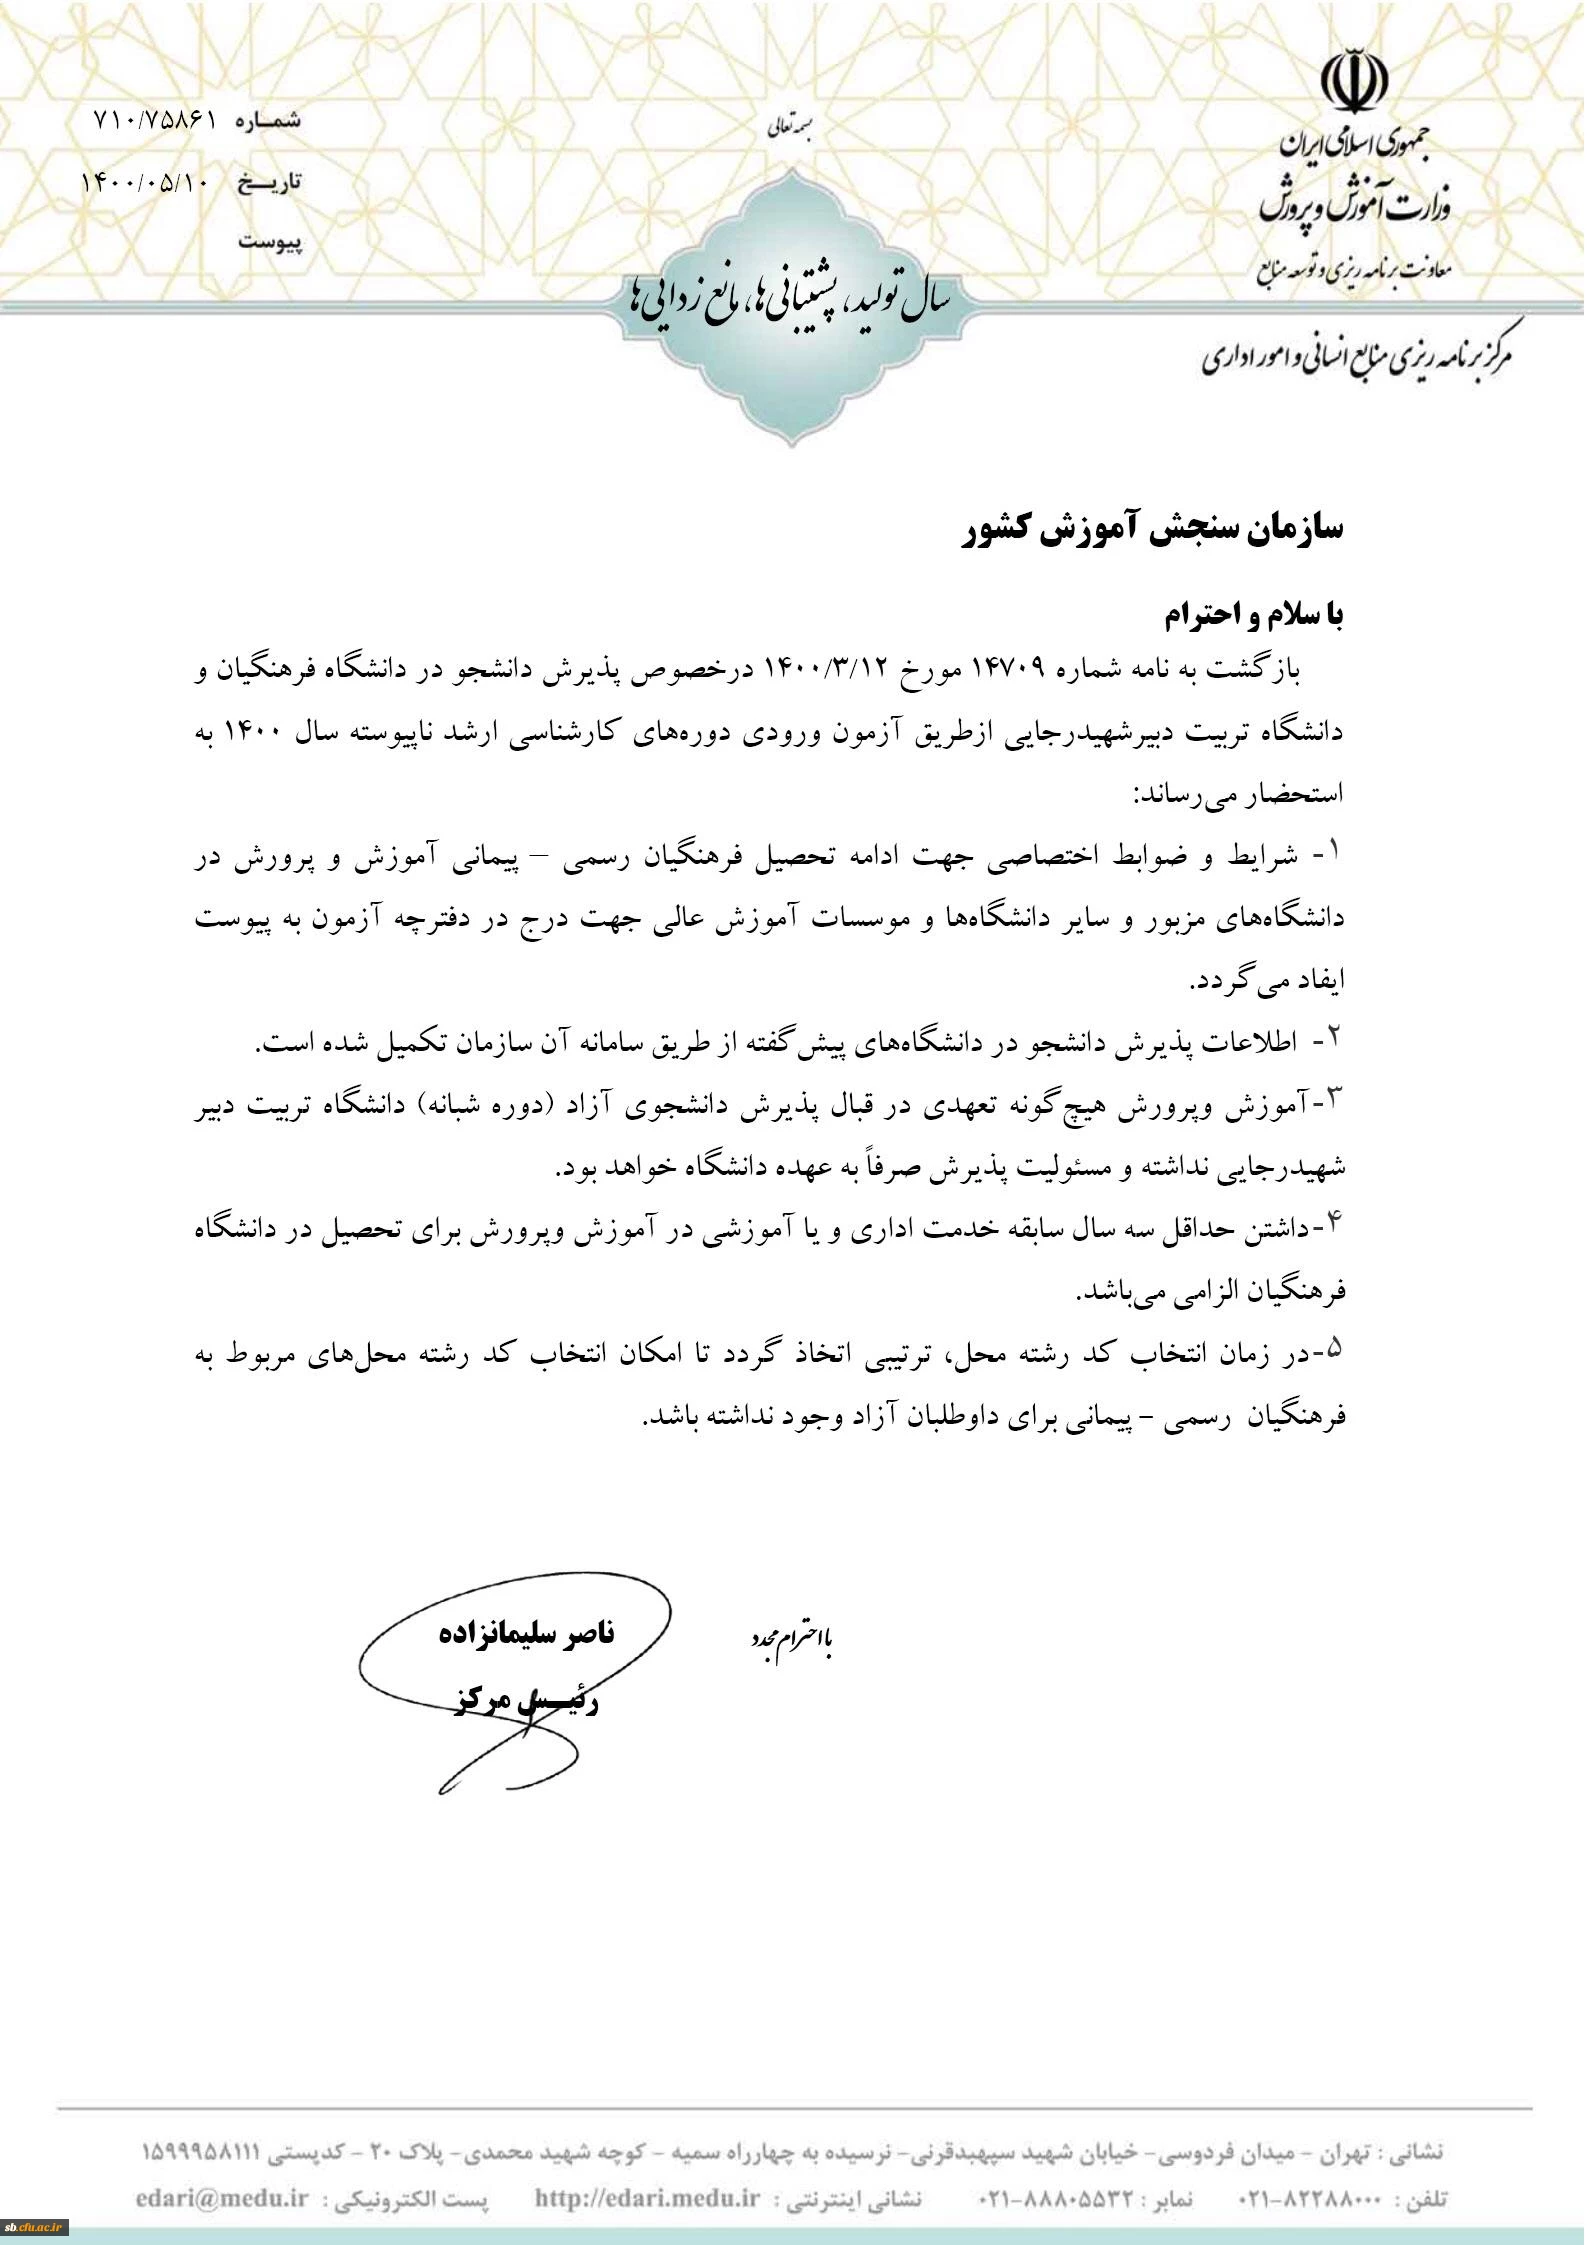 جمهوری اسلامی ایران
وزارت آموزش و پرورش
معاونت برنامه ریزی و توسعه منابع
مرکز برنامه ریزی منابع انسانی و امور اداری
بسمه تعالی
سال تولید، پشتیبانی‌ها، مانع زدایی‌ها
شمــاره ۷۱۰/۷۵۸۶۱
تاریــخ ۱۴۰۰/۰۵/۱۰
پیوست
سازمان سنجش آموزش کشور
با سلام و احترام
بازگشت به نامه شماره ۱۴۷۰۹ مورخ ۱۴۰۰/۳/۱۲ درخصوص پذیرش دانشجو در دانشگاه فرهنگیان و
دانشگاه تربیت دبیرشهیدرجایی ازطریق آزمون ورودی دوره‌های کارشناسی ارشد ناپیوسته سال ۱۴۰۰ به
استحضار می‌رساند:
۱- شرایط و ضوابط اختصاصی جهت ادامه تحصیل فرهنگیان رسمی – پیمانی آموزش و پرورش در
دانشگاه‌های مزبور و سایر دانشگاه‌ها و موسسات آموزش عالی جهت درج در دفترچه آزمون به پیوست
ایفاد می‌گردد.
۲- اطلاعات پذیرش دانشجو در دانشگاه‌های پیش‌گفته از طریق سامانه آن سازمان تکمیل شده است.
۳-آموزش وپرورش هیچ‌گونه تعهدی در قبال پذیرش دانشجوی آزاد (دوره شبانه) دانشگاه تربیت دبیر
شهیدرجایی نداشته و مسئولیت پذیرش صرفاً به عهده دانشگاه خواهد بود.
۴-داشتن حداقل سه سال سابقه خدمت اداری و یا آموزشی در آموزش وپرورش برای تحصیل در دانشگاه
فرهنگیان الزامی می‌باشد.
۵-در زمان انتخاب کد رشته محل، ترتیبی اتخاذ گردد تا امکان انتخاب کد رشته محل‌های مربوط به
فرهنگیان رسمی – پیمانی برای داوطلبان آزاد وجود نداشته باشد.
با احترام مجدد
ناصر سلیمانزاده
رئیــس مرکز
نشانی : تهران - میدان فردوسی- خیابان شهید سپهبدقرنی- نرسیده به چهارراه سمیه - کوچه شهید محمدی- پلاک ۲۰ - کدپستی ۱۵۹۹۹۵۸۱۱۱
تلفن : ۰۲۱-۸۲۲۸۸۰۰۰ نمابر : ۰۲۱-۸۸۸۰۵۵۳۲ نشانی اینترنتی : http://edari.medu.ir پست الکترونیکی : edari@medu.ir
sb.cfu.ac.ir